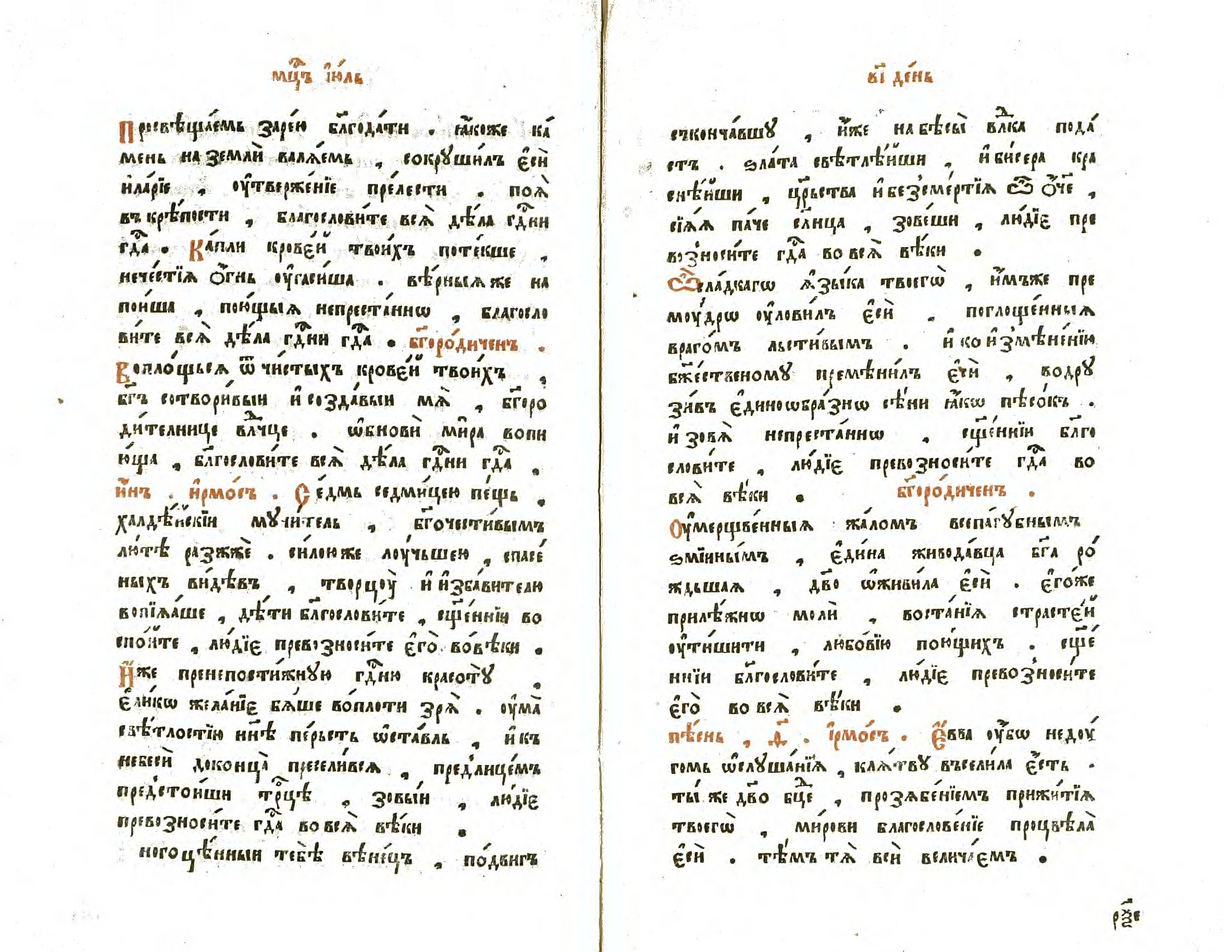 мц҃ъ і҆ю́ль
Просвѣща́емь заре́ю бл҃года́ти . ꙗ҆́коже ка́
мень на землѝ валѧ́емь , сокруши́лъ є҆сѝ
и҆ла́рїе , ᲂу҆твержє́нїе пре́лести . поѧ̀
въ крѣ́пости , благослови́те всѧ̀ дѣ́ла гдⷭ҇ни
гдⷭ҇а . Ка́пли крове́й твои́хъ поте́кше ,
нече́стїѧ ѻ҆́гнь ᲂу҆гаси́ша . вѣ́рныѧ же на
пои́ша , пою́щыѧ непреста́ннѡ , благосло
ви́те всѧ̀ дѣ́ла гдⷭ҇ни гдⷭ҇а . бг҃оро́диченъ .
Вопло́щьсѧ ѿ чи́стыхъ крове́й твои́хъ ,
бг҃ъ сотвори́выи и҆ созда́выи мѧ̀ , бг҃оро
ди́телнице влⷣчце . ѡ҆бновѝ ми́ра вопи
ю́ща , бл҃гослови́те всѧ̀ дѣ́ла гдⷭ҇ни гдⷭ҇а ,
и҆́нъ . і҆рмо́съ . Се́дмь седми́цею пе́щь ,
халдѣ́йскїи мꙋчи́тель , бг҃очести́вымъ
лю́тѣ разжжѐ . си́лою же лꙋ́чьшею , спасе́
ныхъ ви́дѣвъ , творцꙋ̀ и҆ и҆зба́вителю
вопїѧ́ше , дѣ́ти бл҃гослови́те , сщ҃е́ннїи во
спо́йте , лю́дїе превозноси́те є҆го̀ во вѣ́ки .
И҆́же пренепости́жнꙋю гдⷭ҇ню красотꙋ̀ ,
є҆ли́кѡ жела́нїе бѧ́ше во пло́ти зрѧ̀ . ᲂу҆ма̀
свѣ́тлостїю нн҃ѣ пе́рьсть ѡ҆ста́вль , и҆ къ
небесѝ доконца̀ пресели́всѧ , пред̾ лице́мъ
предстои́ши трⷪ҇цѣ , зовы́и , лю́дїе
превозноси́те гдⷭ҇а во всѧ̀ вѣ́ки .
ногоцѣ́нныи тебѣ̀ вѣне́цъ , по́двигъ
в҃і де́нь
скончавшꙋ , и҆́же на бѣ́сы влⷣка пода́
стъ . ѕла́та свѣтлѣ́йши , и҆ би́сера кра
снѣ́йши , црⷭ҇ьства и҆ безсме́ртїѧ ѿ ѻ҆́че ,
сїѧ́ѧ па́че сл҃нца , зове́ши , лю́дїе пре
возноси́те гдⷭ҇а во всѧ̀ вѣ́ки .
Ѿ сла́дкагѡ ѧ҆зы́ка твоегѡ̀ , и҆́мъже пре
мꙋ́дрѡ ᲂу҆лови́лъ є҆сѝ . поглоще́нныѧ
враго́мъ льсти́вымъ . и҆ ко и҆змѣне́нїю
бж҃ественомꙋ премѣни́лъ є҆сѝ , водрꙋ
зи́въ є҆динѡѻбра́знѡ сѣ́ни ꙗ҆́кѡ пѣсо́къ .
и҆ зовѧ̀ непреста́ннѡ , сщ҃е́ннїи бл҃го
слови́те , лю́дїе превозноси́те гдⷭ҇а во
всѧ̀ вѣ́ки . бг҃оро́диченъ .
Оу҆мерщве́нныѧ жа́ломъ всепа́гꙋбнымъ
ѕмїи́нымъ , є҆ди́на живода́вца бг҃а ро́
ждьшаѧ , дв҃о ѡ҆живи́ла є҆сѝ . є҆го́же
прилѣ́жнѡ молѝ , воста́нїѧ страсте́й
ᲂу҆тиши́ти , любо́вїю пою́щихъ . сщ҃е́
ннїи бл҃гослови́те , лю́дїе превозноси́те
є҆го̀ во всѧ̀ вѣ́ки .
пѣ́снь , ѳ҃ . і҆рмо́съ . Є҆́вва ᲂу҆́бѡ недꙋ́
гомь ѡ҆слꙋша́нїѧ , клѧ́твꙋ всели́ла є҆́сть .
ты́ же дв҃о бц҃е , прозѧбе́нїемъ прижи́тїѧ
твоегѡ̀ , ми́рови благослове́нїе процвѣла̀
є҆сѝ . тѣ́мъ тѧ̀ всѝ велича́емъ .
рѯ҃е